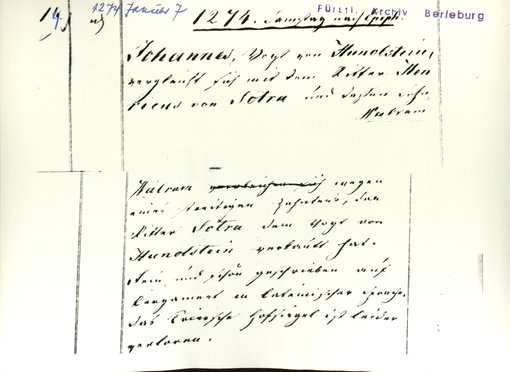 14 1274 Januar 7
1274. Samstag nach Epiph.
Fürstl. Archiv Berleburg
Johannes, Vogt von Hundstein,
vergleicht sich mit dem Ritter Hen-
ricus von Sotra und dessen Sohn
Walram
Walram vergleichen sich wegen
eines streitigen Zehntens, den
Ritter Sotra dem Vogt von
Hundstein verkauft hat.
Fein und schön geschrieben auf
Pergament in lateinischer Sprache,
das Trierische Hofsiegel ist leider
verloren.